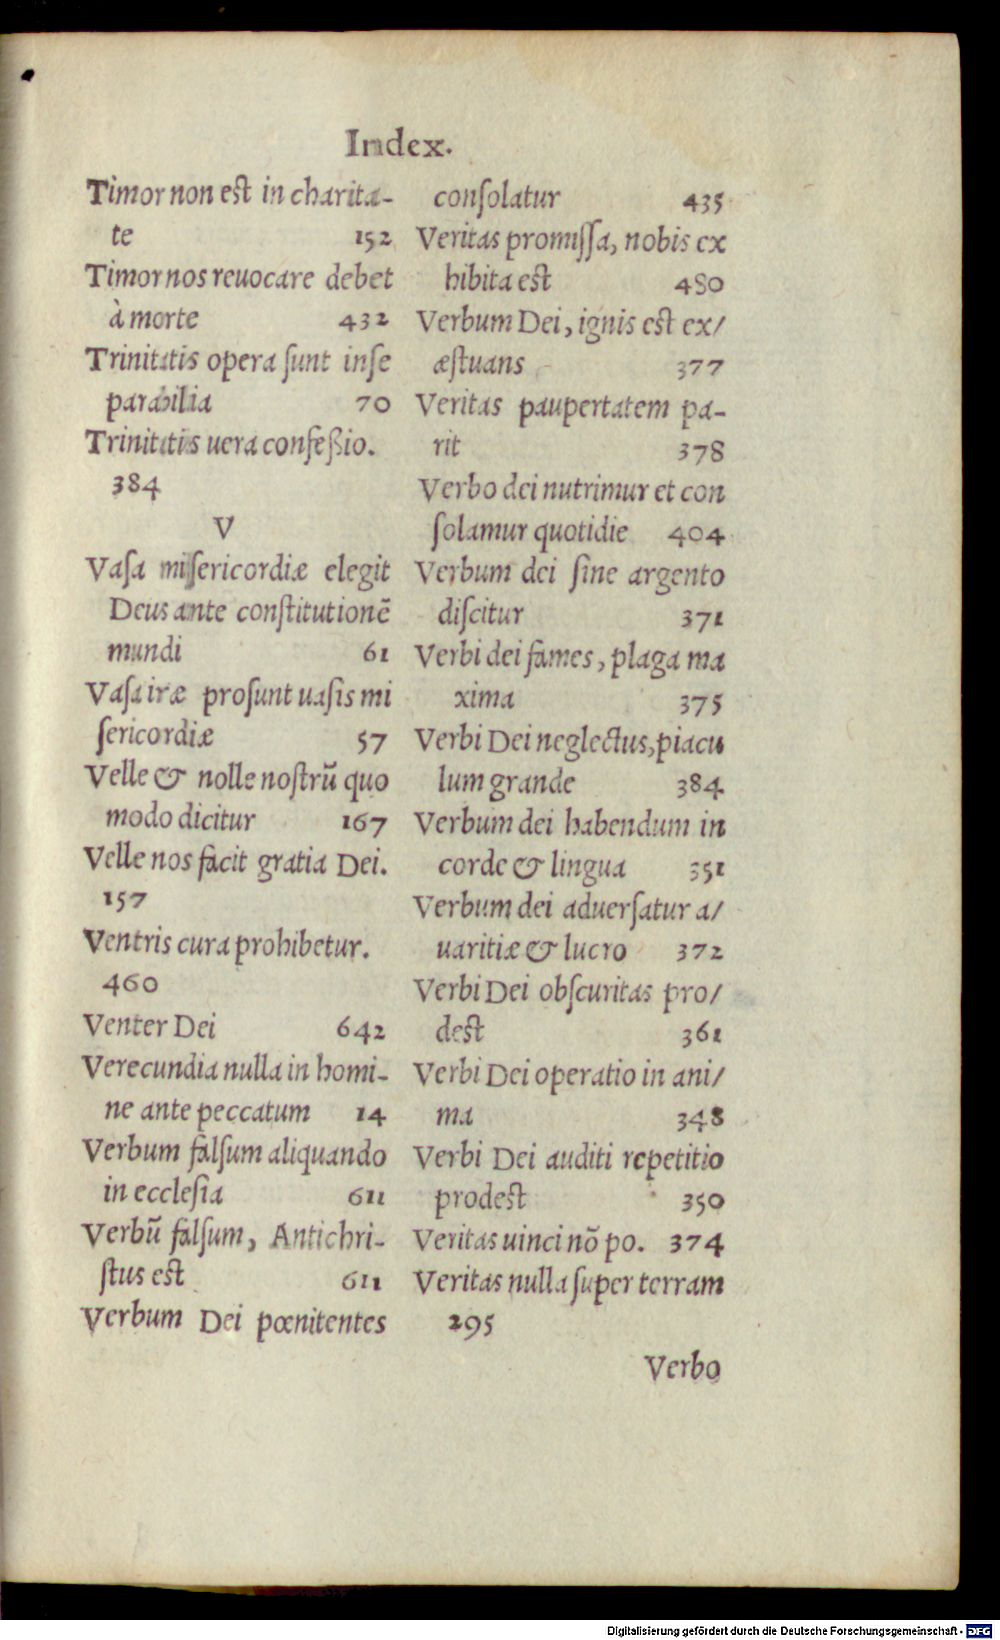 Index.
Timor non est in charita-
te 152
Timor nos reuocare debet
à morte 432
Trinitatis opera ſunt inſe
parabilia 70
Trinitatis uera confeßio.
384
V
Vaſa miſericordiæ elegit
Deus ante conſtitutionē
mundi 61
Vaſa iræ proſunt uaſis mi
ſericordiæ 57
Velle & nolle noſtrū quo
modo dicitur 167
Velle nos facit gratia Dei.
157
Ventris cura prohibetur.
460
Venter Dei 642
Verecundia nulla in homi-
ne ante peccatum 14
Verbum falſum aliquando
in eccleſia 611
Verbū falſum, Antichri-
ſtus est 611
Verbum Dei pœnitentes
conſolatur 435
Veritas promiſſa, nobis ex
hibita est 480
Verbum Dei, ignis est ex/
æſtuans 377
Veritas paupertatem pa-
rit 378
Verbo dei nutrimur et con
ſolamur quotidie 404
Verbum dei ſine argento
diſcitur 371
Verbi dei fames, plaga ma
xima 375
Verbi Dei neglectus, piacu
lum grande 384
Verbum dei habendum in
corde & lingua 351
Verbum dei aduerſatur a/
uaritiæ & lucro 372
Verbi Dei obſcuritas pro/
dest 361
Verbi Dei operatio in ani/
ma 348
Verbi Dei auditi repetitio
prodest 350
Veritas uinci nō po. 374
Veritas nulla ſuper terram
295
Verbo
Digitalisierung gefördert durch die Deutsche Forschungsgemeinschaft - DFG